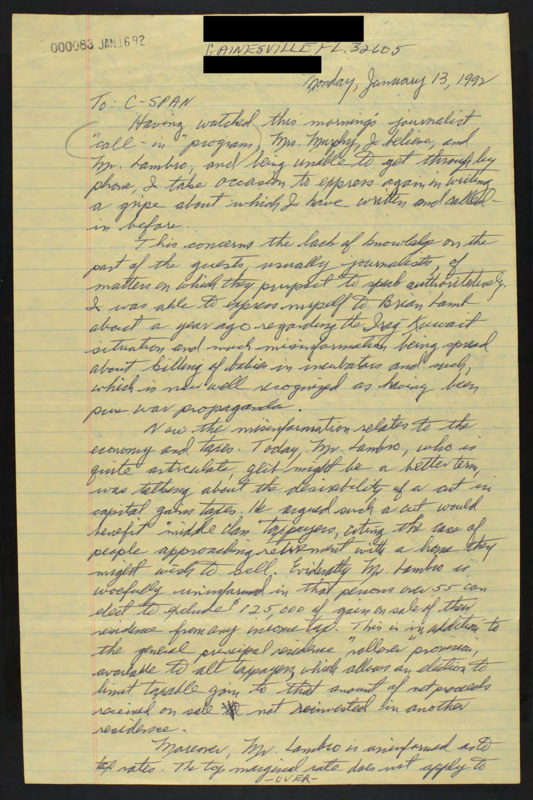 000083 JAN 16 92
GAINESVILLE FL. 32605
Monday, January 13, 1992
To: C-SPAN
Having watched this mornings journalist
"call-in" program, Mrs. Murphy, I believe, and
Mr. Lambro, and being unable to get through by
phone, I take occasion to express again in writing
a gripe about which I have written and called-
in before.
This concerns the lack of knowledge on the
part of the guests, usually journalists, of
matters on which they purport to speak authoritatively.
I was able to express myself to Brian Lamb
about a year ago regarding the Iraq Kuwait
situation and much misinformation being spread
about killing of babies in incubators and such,
which is now well recognized as having been
pure war propaganda.
Now the misinformation relates to the
economy and taxes. Today, Mr. Lambro, who is
quite articulate, glib might be a better term,
was talking about the desirability of a cut in
capital gains taxes. He argued such a cut would
benefit "middle class" taxpayers, citing the case of
people approaching retirement with a home they
might wish to sell. Evidently Mr. Lambro is
woefully uninformed in that persons over 55 can
elect to exclude $125,000 of gain on sale of their
residence from any income tax. This is in addition to
the general principal residence "rollover" provision,
available to all taxpayers, which allows an election to
limit taxable gain to that amount of net proceeds
received on sale not reinvested in another
residence.
Moreover, Mr. Lambro is uninformed as to
tax rates. The top marginal rate does not apply to
-OVER-